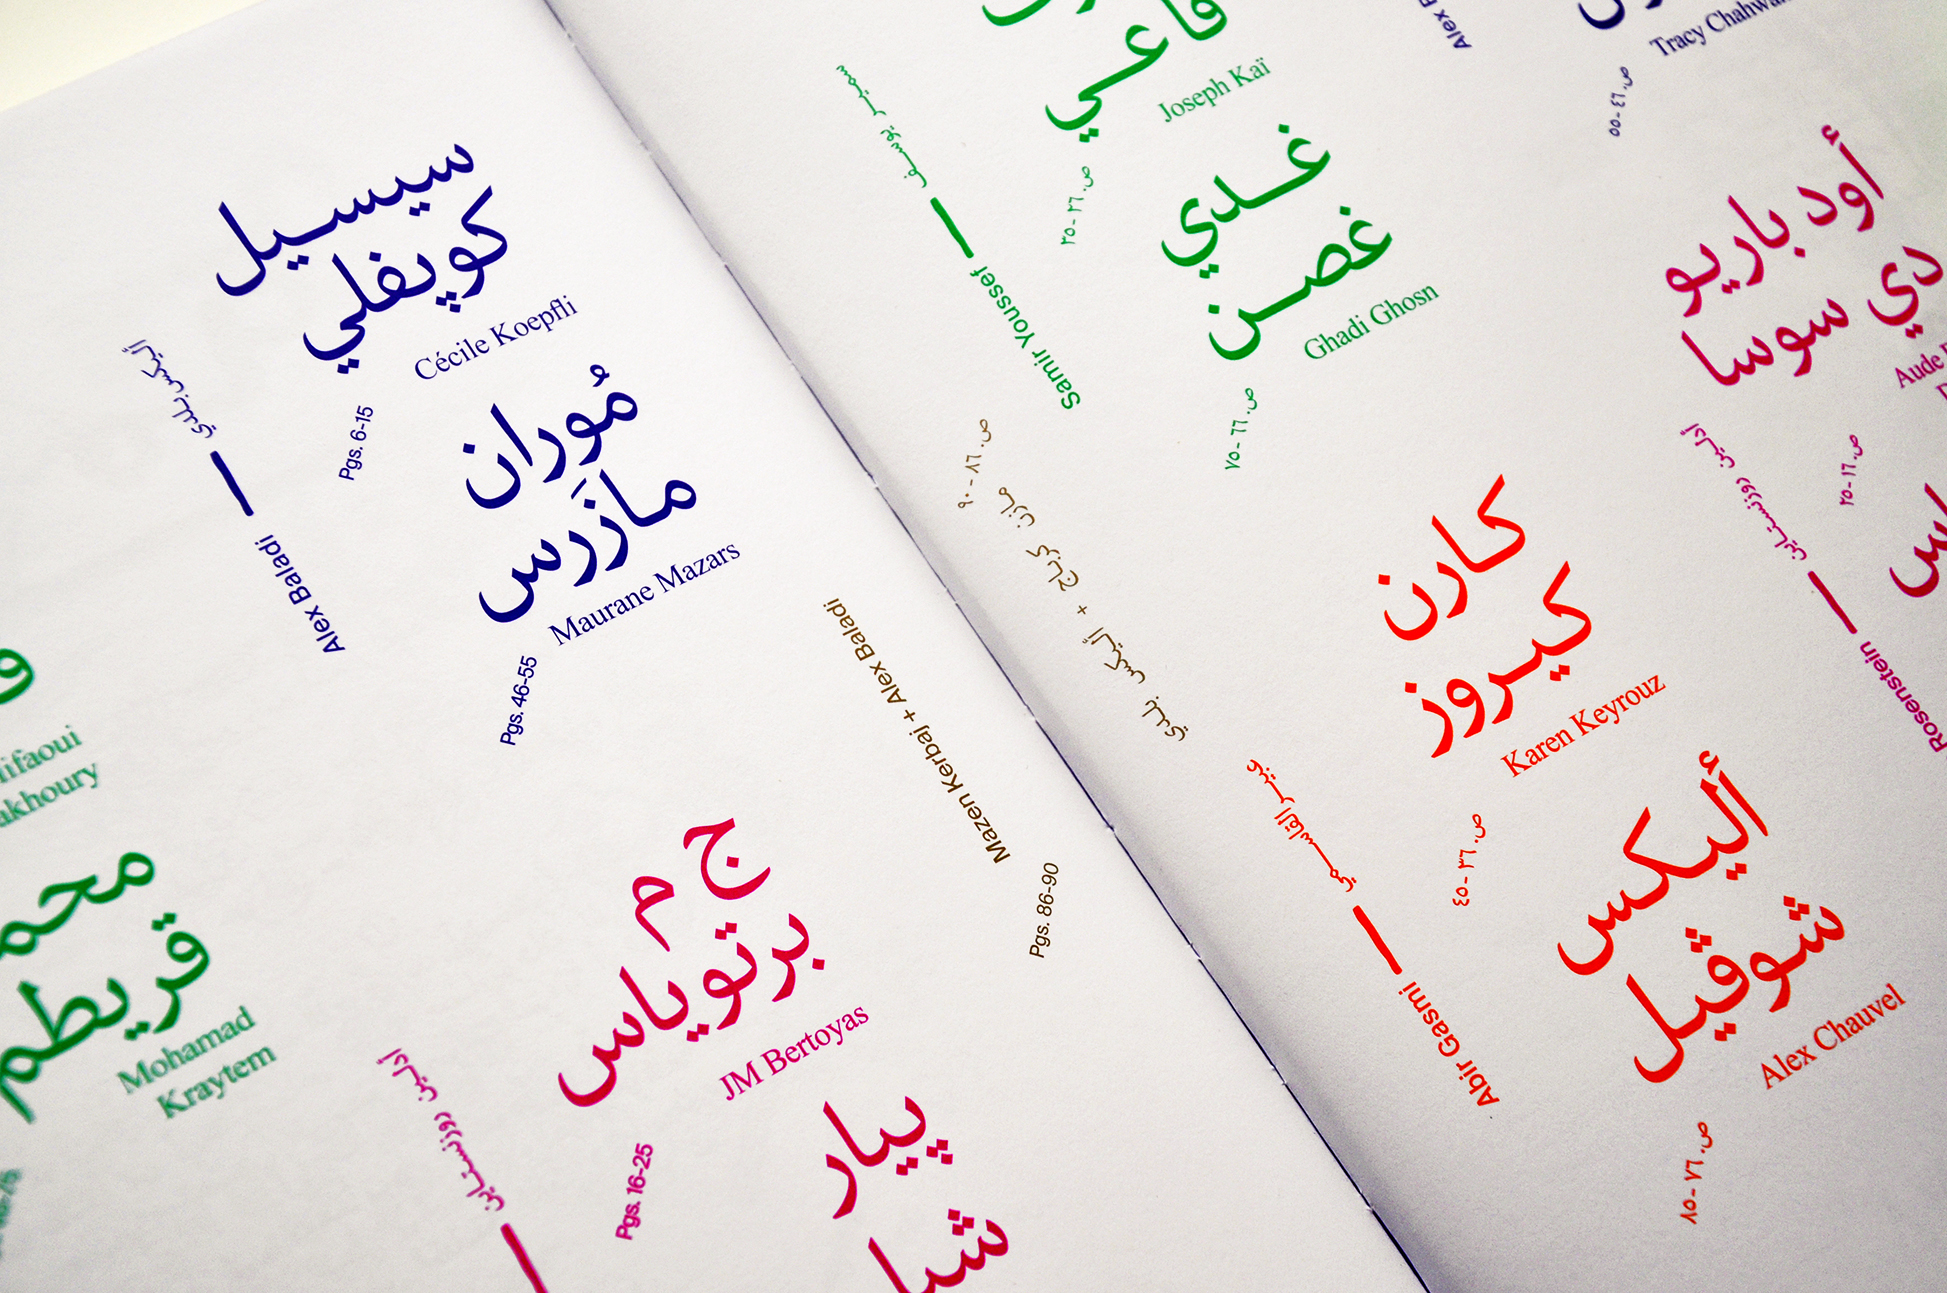 سيسيل
كوپفلي
Cécile Koepfli
Pgs. 6-15
أليكس بلدي
Alex Baladi
مُوران
مازَرس
Maurane Mazars
Pgs. 46-55
Mazen Kerbaj + Alex Baladi
Pgs. 86-90
akhoury
قريطم
Mohamad
Kraytem
ج م
برتوياس
JM Bertoyas
Pgs. 16-25
أدلين روزنستاين
پيار
فاعي
Joseph Kaï
ص. ٢٦ - ٣٥
سمير يوسف
Samir Youssef
غدي
غصن
Ghadi Ghosn
ص. ٦٦ - ٧٥
ص. ٨٦ - ٩٠
مازن كرباج + أليكس بلدي
كارن
كيروز
Karen Keyrouz
ص. ٣٦ - ٤٥
عبير القاسمي
Abir Gasmi
أليكس
شوڤيل
Alex Chauvel
ص. ٧٦ - ٨٥
Alex
Tracy
ص. ٤٦ - ٥٥
أود باريو
دي سوسا
Aude
ص. ١٦ - ٢٥
أدلين روزنستاين
Rosenstein